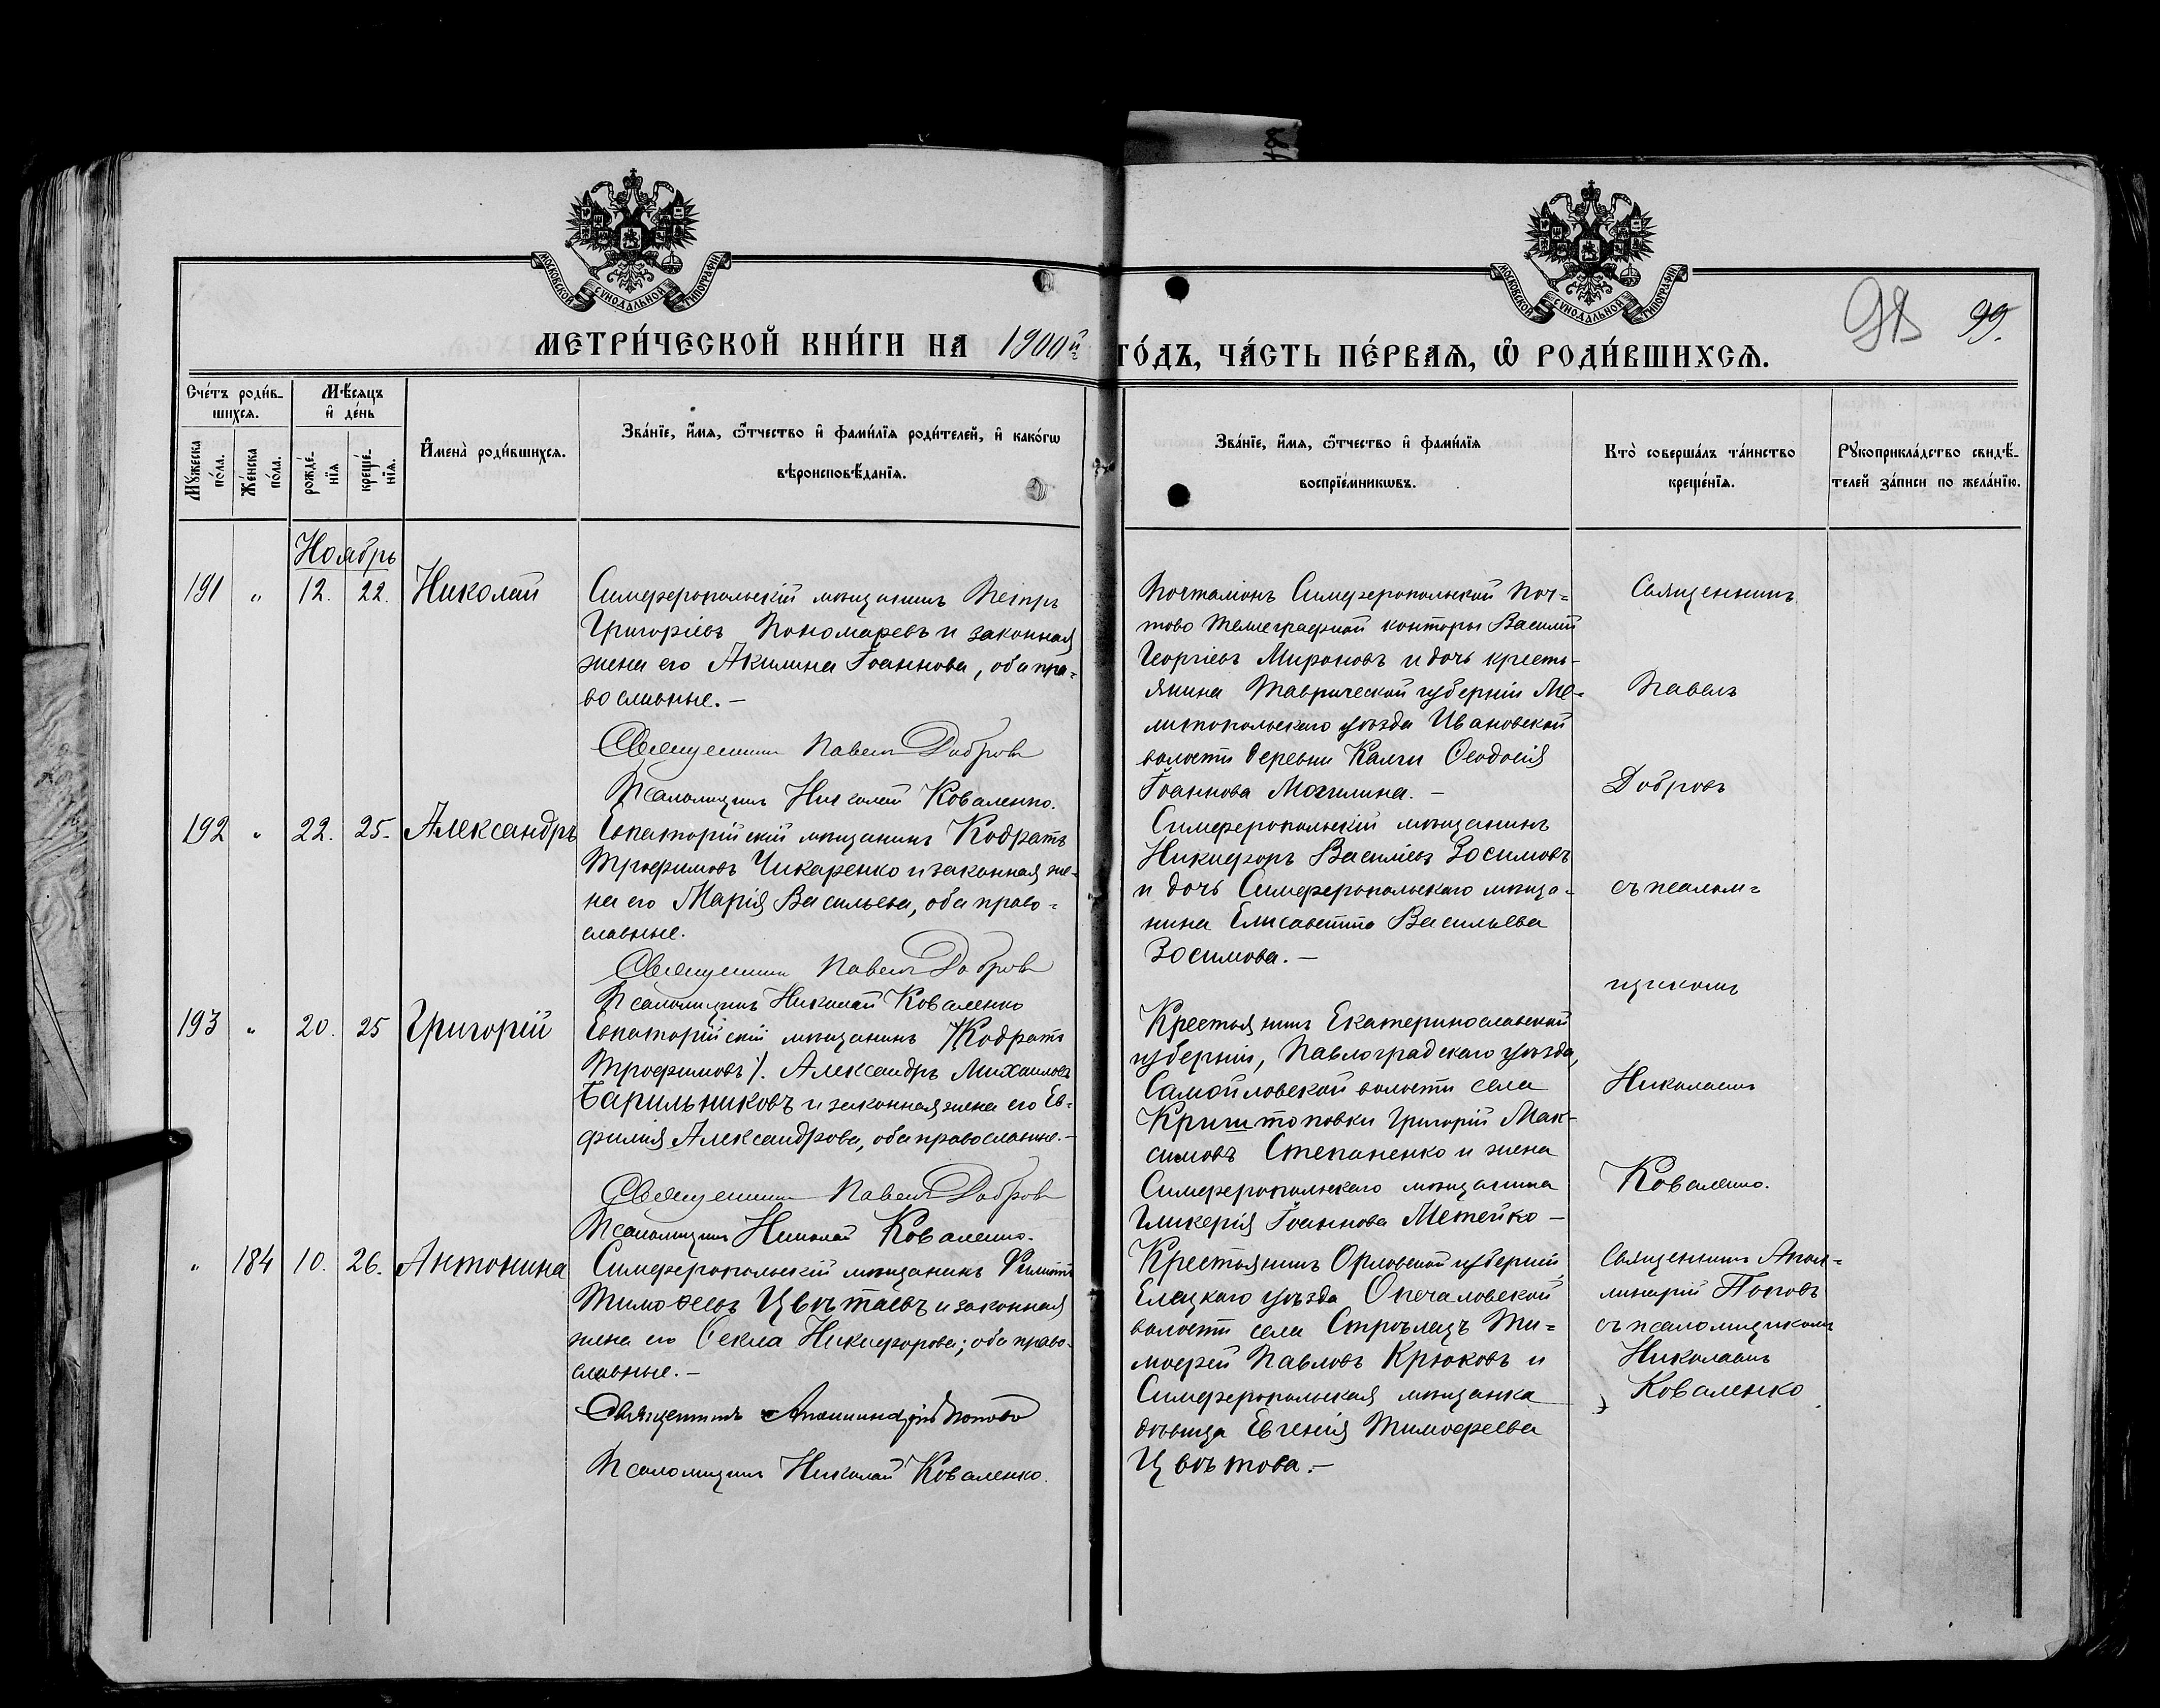 МОСКОВСКОЙ СѴНОДАЛЬНОЙ ТИПОГРАФІИ
МОСКОВСКОЙ СѴНОДАЛЬНОЙ ТИПОГРАФІИ
98 99.
МЕТРИ́ЧЕСКОЙ КНИ́ГИ НА 1900й
ГО́ДЪ, ЧА́СТЬ ПЕ́РВАѦ, Ѡ҆ РОДИ́ВШИХСѦ.
Сче́тъ роди́в-
шихсѧ.
Мꙋ́жеска по́ла.
Же́нска по́ла.
Мѣ́сѧцъ
и҆ де́нь
рожде́нїѧ
креще́нїѧ.
И҆мена̀ роди́вшихсѧ.
Зва́нїе, и҆́мѧ, ѻ҆́тчество и҆ фами́лїѧ роди́телей, и҆ како́гѡ
вѣроисповѣ́данїѧ.
Зва́нїе, и҆́мѧ, ѻ҆́тчество и҆ фами́лїѧ
воспрїе́мникѡвъ.
Кто̀ соверша́лъ та́инство
креще́нїѧ.
Рꙋкоприкла́дство свидѣ́-
телей за́писи по жела́нїю.
Ноябрь
191 " 12. 22. Николай
Симферопольскій мѣщанинъ Петръ
Григоріевъ Пономаревъ и законная
жена его Акилина Іоаннова, оба пра=
вославные.—
Священникъ Павелъ Добровъ
Псаломщикъ Николай Коваленко.
Почталіонъ Симферопольской Поч=
тово Телеграфной конторы Василій
Георгіевъ Мироновъ и дочь кресть-
янина Таврической губерніи Ме-
литопольскаго уѣзда Ивановской
волости деревни Калги Ѳеодосія
Іоаннова Могилина.—
Священникъ
Павелъ
Добровъ
съ псалом=
щикомъ
Николаемъ
Коваленко.
192 " 22. 25. Александръ
Евпаторійскій мѣщанинъ Кодратъ
Трофимовъ Чикаренко и законная же-
на его Марія Васильева, оба право=
славные.
Священникъ Павелъ Добровъ
Псаломщикъ Николай Коваленко
Симферопольскій мѣщанинъ
Никифоръ Василіевъ Зосимовъ
и дочь Симферопольскаго мѣща-
нина Елисавета Васильева
Зосимова.—
193 " 20. 25 Григорій
Евпаторійскій мѣщанинъ /Кодратъ
Трофимовъ/. Александръ Михаиловъ
Барильниковъ и законная жена его Ев-
филія Александрова, оба православные.—
Священникъ Павелъ Добровъ
Псаломщикъ Николай Коваленко.
Крестьянинъ Екатеринославской
губерніи, Павлоградскаго уѣзда,
Самойловской волости села
Криштоповки Григорій Мак-
симовъ Степаненко и жена
Симферопольскаго мѣщанина
Гликерія Іоаннова Метейко—
" 184 10. 26. Антонина
Симферопольскій мѣщанинъ Филиппъ
Тимоѳеевъ Цвѣтаевъ и законная
жена его Ѳекла Никифорова; оба право-
славные.—
Священникъ Аполлинарій Поповъ
Псаломщикъ Николай Коваленко.
Крестьянинъ Орловской губерніи,
Елецкаго уѣзда Опечаловской
волости села Стрѣлецъ Ти=
мофей Павловъ Крюковъ и
Симферопольская мѣщанка
дѣвица Евгенія Тимофеева
Цвѣтова.—
Священникъ Апол=
линарій Поповъ
съ псаломщикомъ
Николаемъ
Коваленко